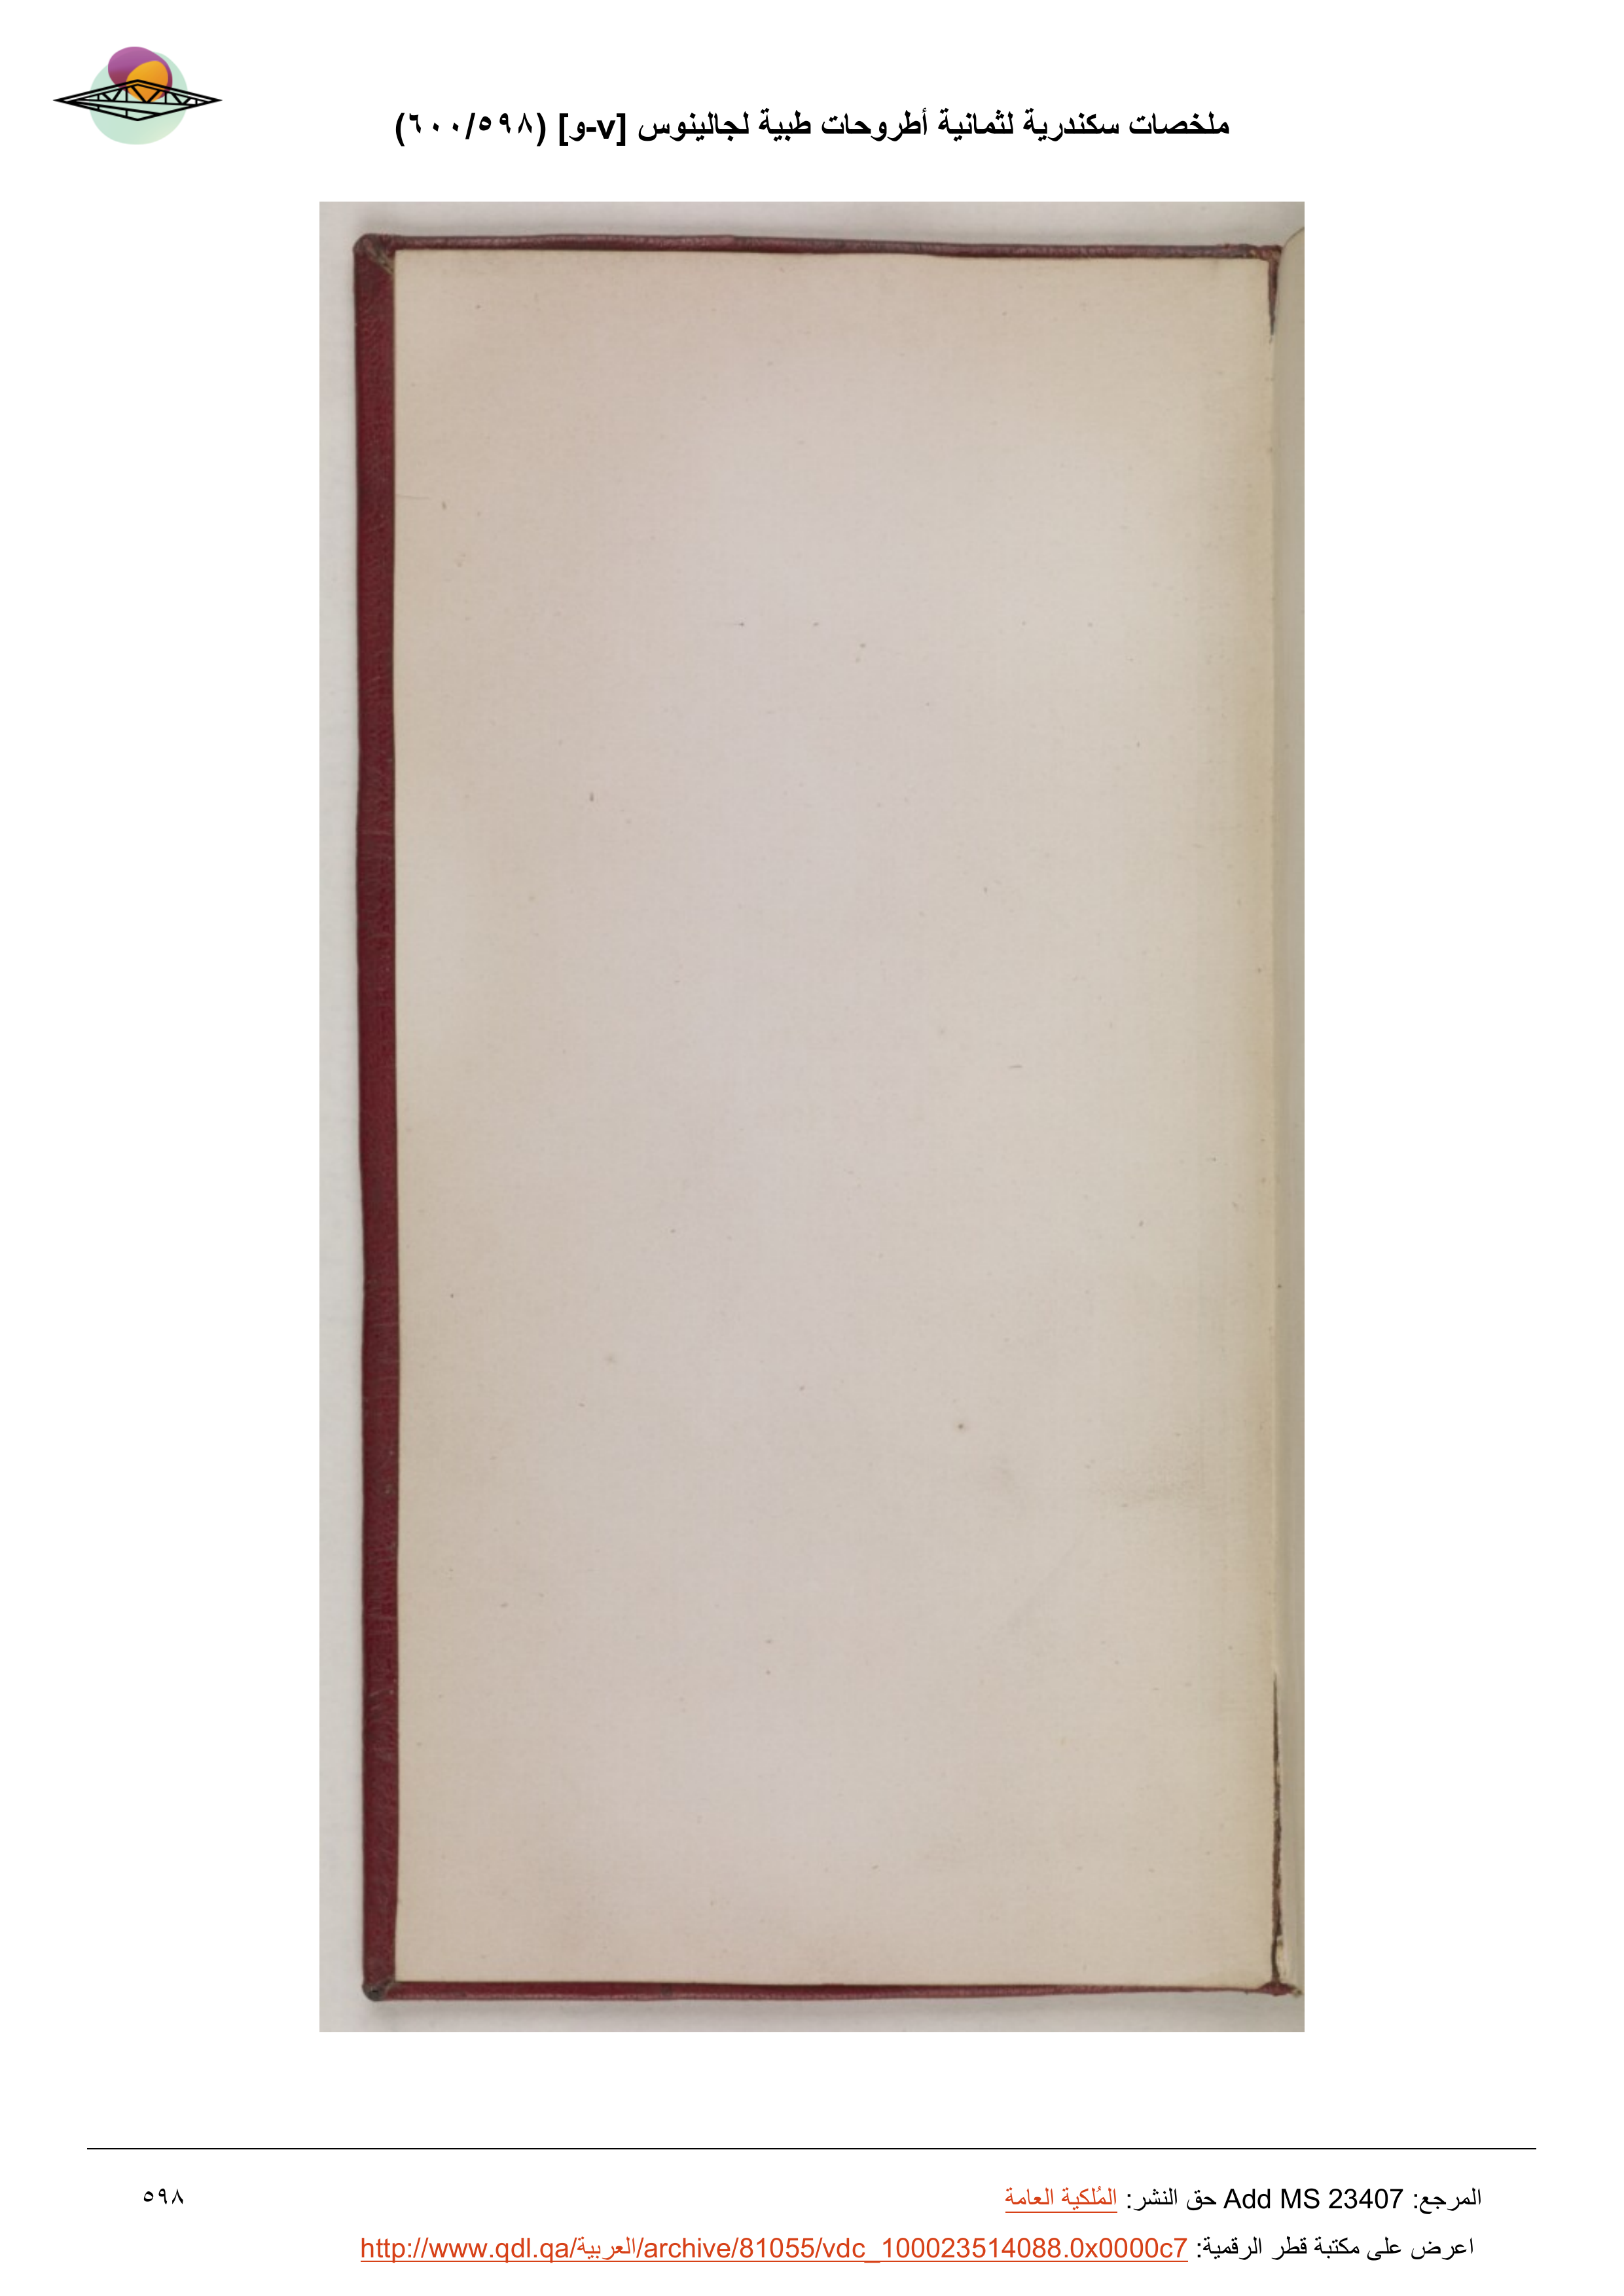 ملخصات سكندرية لثمانية أطروحات طبية لجالينوس [v-و] (٥٩٨/٦٠٠)
المرجع: Add MS 23407 حق النشر: المُلكية العامة
٥٩٨
اعرض على مكتبة قطر الرقمية: http://www.qdl.qa/العربية/archive/81055/vdc_100023514088.0x0000c7